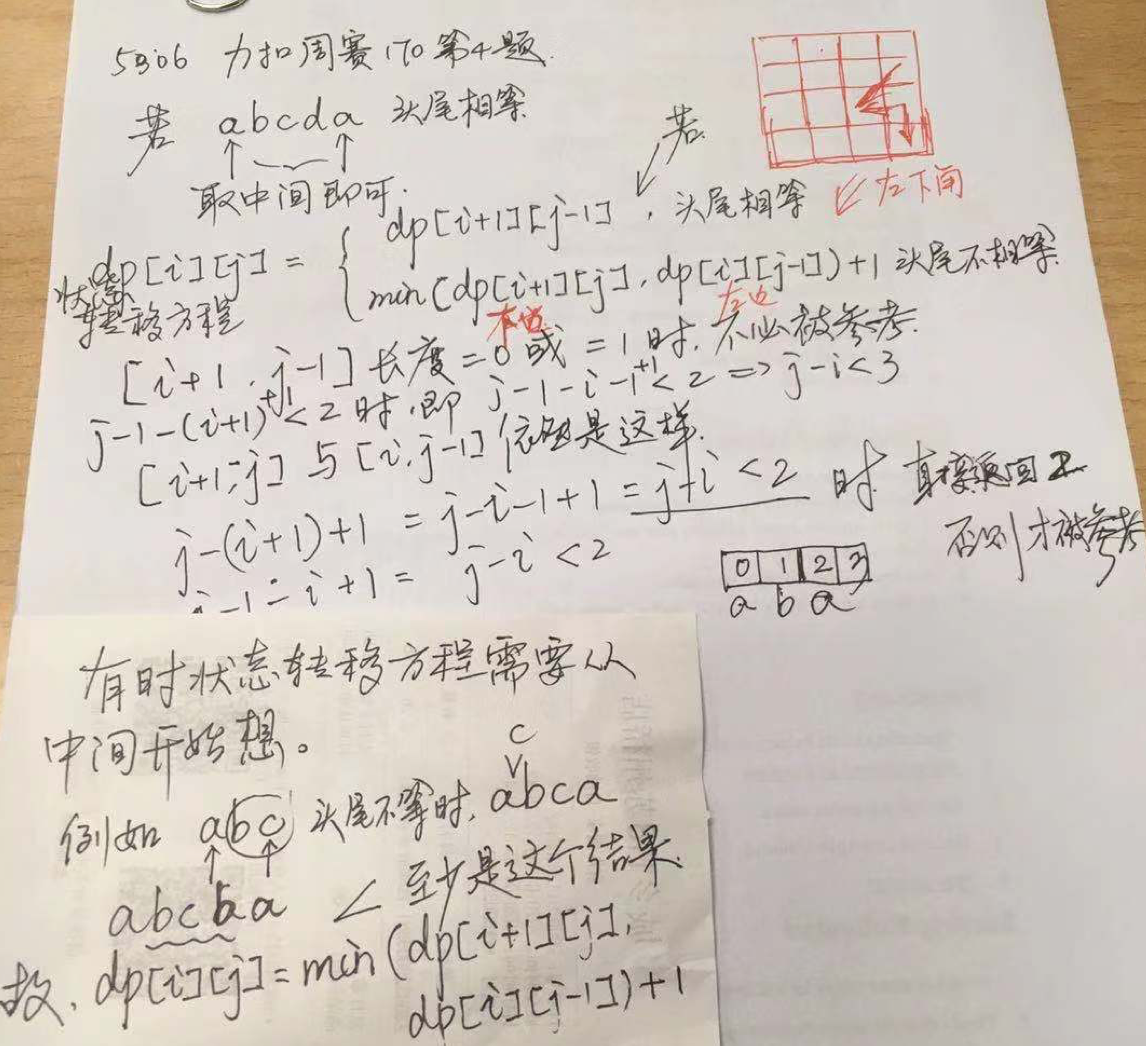 5306 力扣周赛170第4题.
若 abcda 头尾相等
取中间即可.
若.
左下角
dp[i][j] = { dp[i+1][j-1], 头尾相等
min(dp[i+1][j], dp[i][j-1])+1 头尾不相等.
状态
转移方程
左边
[i+1, j-1]长度=0或=1时, 不必被参考.
j-1-(i+1)+1<2时,即 j-1-i-1+1<2 => j-i<3
[i+1,j]与[i,j-1]依然是这样.
j-(i+1)+1 = j-i-1+1 = j-i <2 时
j-1-i+1 = j-i<2
否则才被参考
0 1 2 3
a b a
有时状态转移方程需要从
中间开始想。
c
例如 abc 头尾不等时, abca
abcba 至少是这个结果.
故, dp[i][j]=min(dp[i+1][j],
dp[i][j-1])+1